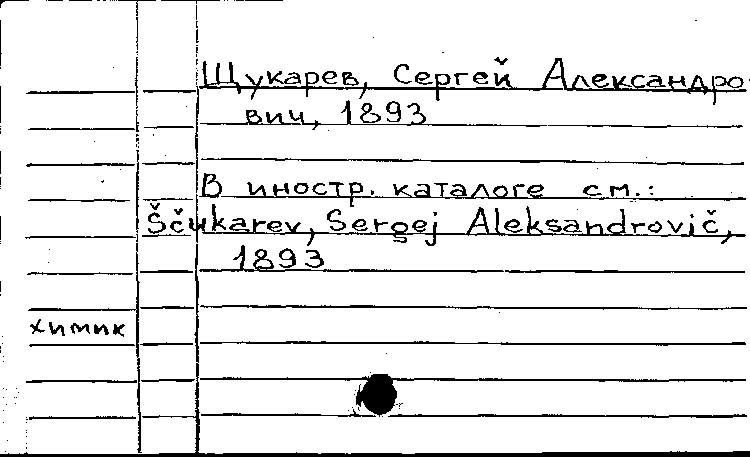 Щукарев, Сергей Александро
вич, 1893
В иностр. каталоге см.:
Ščukarev, Sergej Aleksandrovič,
1893
химик